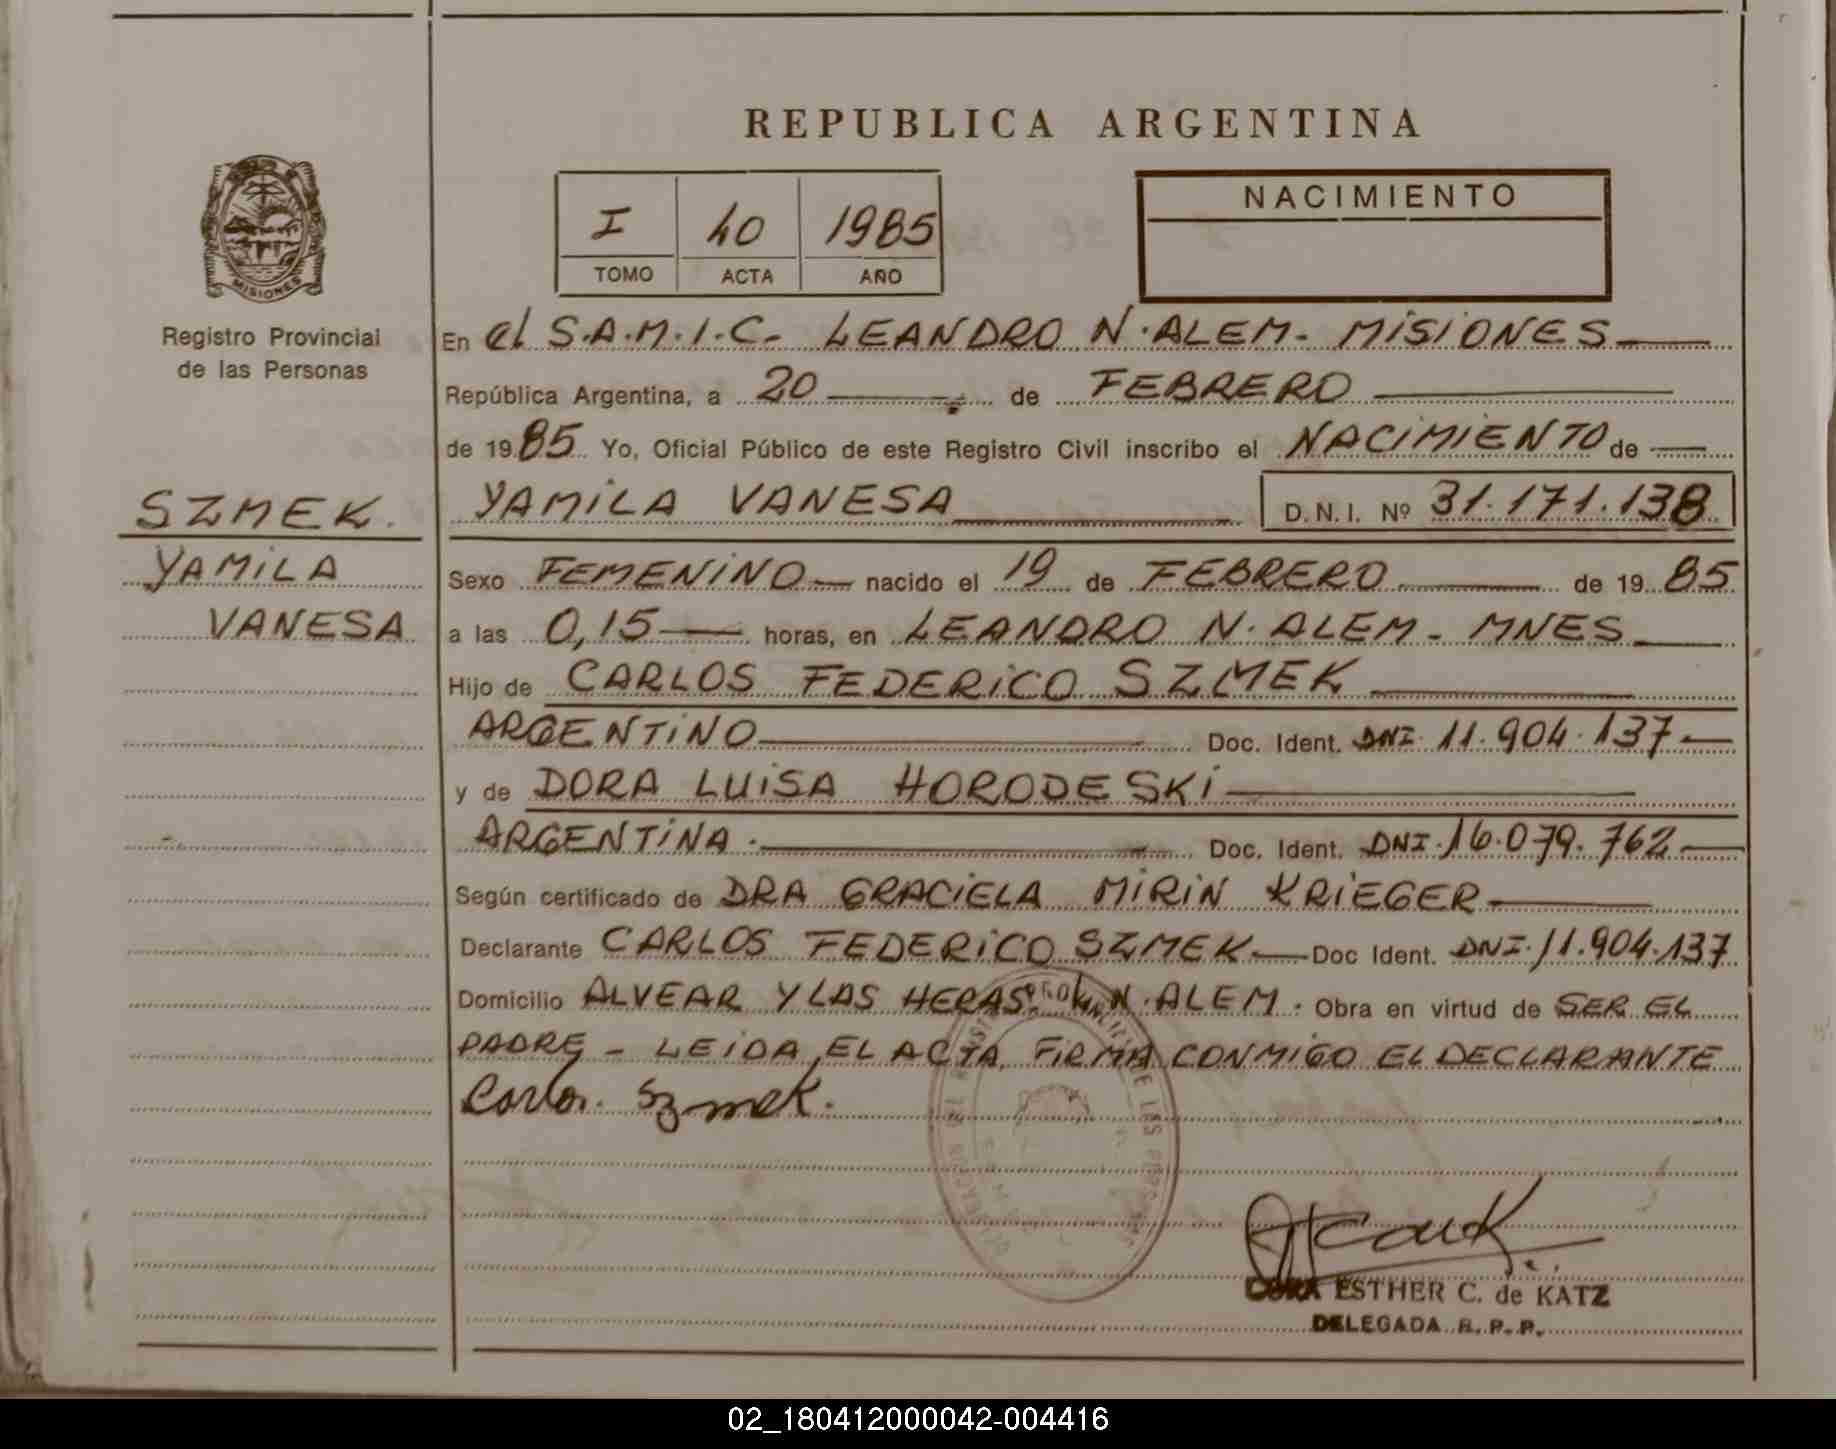 REPUBLICA ARGENTINA
NACIMIENTO
I 40 1985
TOMO ACTA AÑO
MISIONES
Registro Provincial
de las Personas
SZMEK.
YAMILA
VANESA
En el S.A.M.I.C- LEANDRO N. ALEM- MISIONES
República Argentina, a 20 de FEBRERO
de 1985 Yo, Oficial Público de este Registro Civil inscribo el NACIMIENTO de
YAMILA VANESA D.N.I. Nº 31.171.138
Sexo FEMENINO nacido el 19 de FEBRERO de 1985
a las 0,15 horas, en LEANDRO N. ALEM - MNES
Hijo de CARLOS FEDERICO SZMEK
ARGENTINO Doc. Ident. DNI. 11.904.137
y de DORA LUISA HORODESKI
ARGENTINA. Doc. Ident. DNI. 16.079.762
Según certificado de DRA GRACIELA MIRIN KRIEGER
Declarante CARLOS FEDERICO SZMEK Doc Ident. DNI. 11.904.137
Domicilio ALVEAR Y LAS HERAS. L.N. ALEM. Obra en virtud de SER EL
PADRE - LEIDA EL ACTA, FIRMA CONMIGO EL DECLARANTE
Carlos. Szmek.
DORA ESTHER C. de KATZ
DELEGADA R. P. P.
02_180412000042-004416